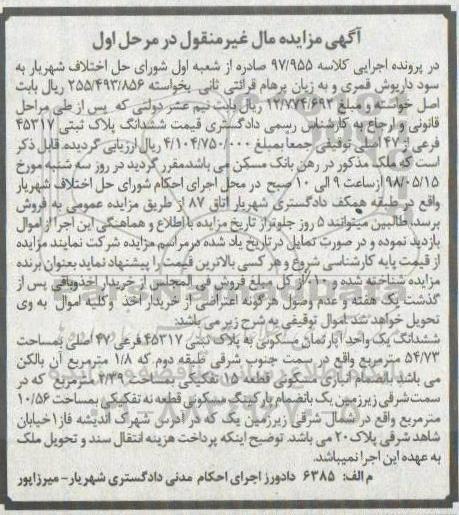 آگهی مزایده مال غیرمنقول در مرحل اول
در پرونده اجرایی کلاسه ۹۷/۹۵۵ صادره از شعبه اول شورای حل اختلاف شهریار به
سود داریوش قمری و به زیان پرهام قرائتی ثانی بخواسته ۲۵۵/۴۹۳/۸۵۶ ریال بابت
اصل خواسته و مبلغ ۱۲/۷۷۴/۶۹۲ ریال بابت نیم عشر دولتی که پس از طی مراحل
قانونی و ارجاع به کارشناس رسمی دادگستری قیمت ششدانگ پلاک ثبتی ۴۵۳۱۷
فرعی از ۴۷ اصلی توقیفی جمعا بمبلغ ۴/۱۰۴/۷۵۰/۰۰۰ ریال ارزیابی گردیده. قابل ذکر
است که ملک مذکور در رهن بانک مسکن می باشد مقرر گردید در روز سه شنبه مورخ
۹۸/۰۵/۱۵ از ساعت ۹ الی ۱۰ صبح در محل اجرای احکام شورای حل اختلاف شهریار
واقع در طبقه همکف دادگستری شهریار اتاق ۸۷ از طریق مزایده عمومی به فروش
برسد. طالبین میتوانند ۵ روز جلوتر از تاریخ مزایده با اطلاع و هماهنگی این اجرا از اموال
بازدید نموده و در صورت تمایل در تاریخ یاد شده در مراسم مزایده شرکت نمایند مزایده
از قیمت پایه کارشناسی شروع و هر کسی بالاترین قیمت را پیشنهاد نماید بعنوان برنده
مزایده شناخته شده و از کل مبلغ فروش فی المجلس از خریدار اخذ و باقی پس از
گذشت یک هفته و عدم وصول هرگونه اعتراضی از خریدار اخذ وکلیه اموال به وی
تحویل خواهد شد. اموال توقیفی به شرح زیر می باشد:
ششدانگ یک واحد آپارتمان مسکونی به پلاک ثبتی ۴۵۳۱۷ فرعی ۴۷ اصلی بمساحت
۵۴/۷۳ مترمربع واقع در سمت جنوب شرقی طبقه دوم که ۱/۸ مترمربع آن بالکن
می باشد بانضمام انباری مسکونی قطعه ۱۵ تفکیکی بمساحت ۲/۳۹ مترمربع که در
سمت شرقی زیرزمین یک بانضمام پارکینگ مسکونی قطعه نه تفکیکی بمساحت ۱۰/۵۶
مترمربع واقع در شمال شرقی زیرزمین یک که در آدرس شهرک اندیشه فاز۱خیابان
شاهد شرقی پلاک ۲۰ می باشد. توضیح اینکه پرداخت هزینه انتقال سند و تحویل ملک
به عهده این اجرا نمیباشد.
م الف: ۶۳۸۵ دادورز اجرای احکام مدنی دادگستری شهریار- میرزاپور